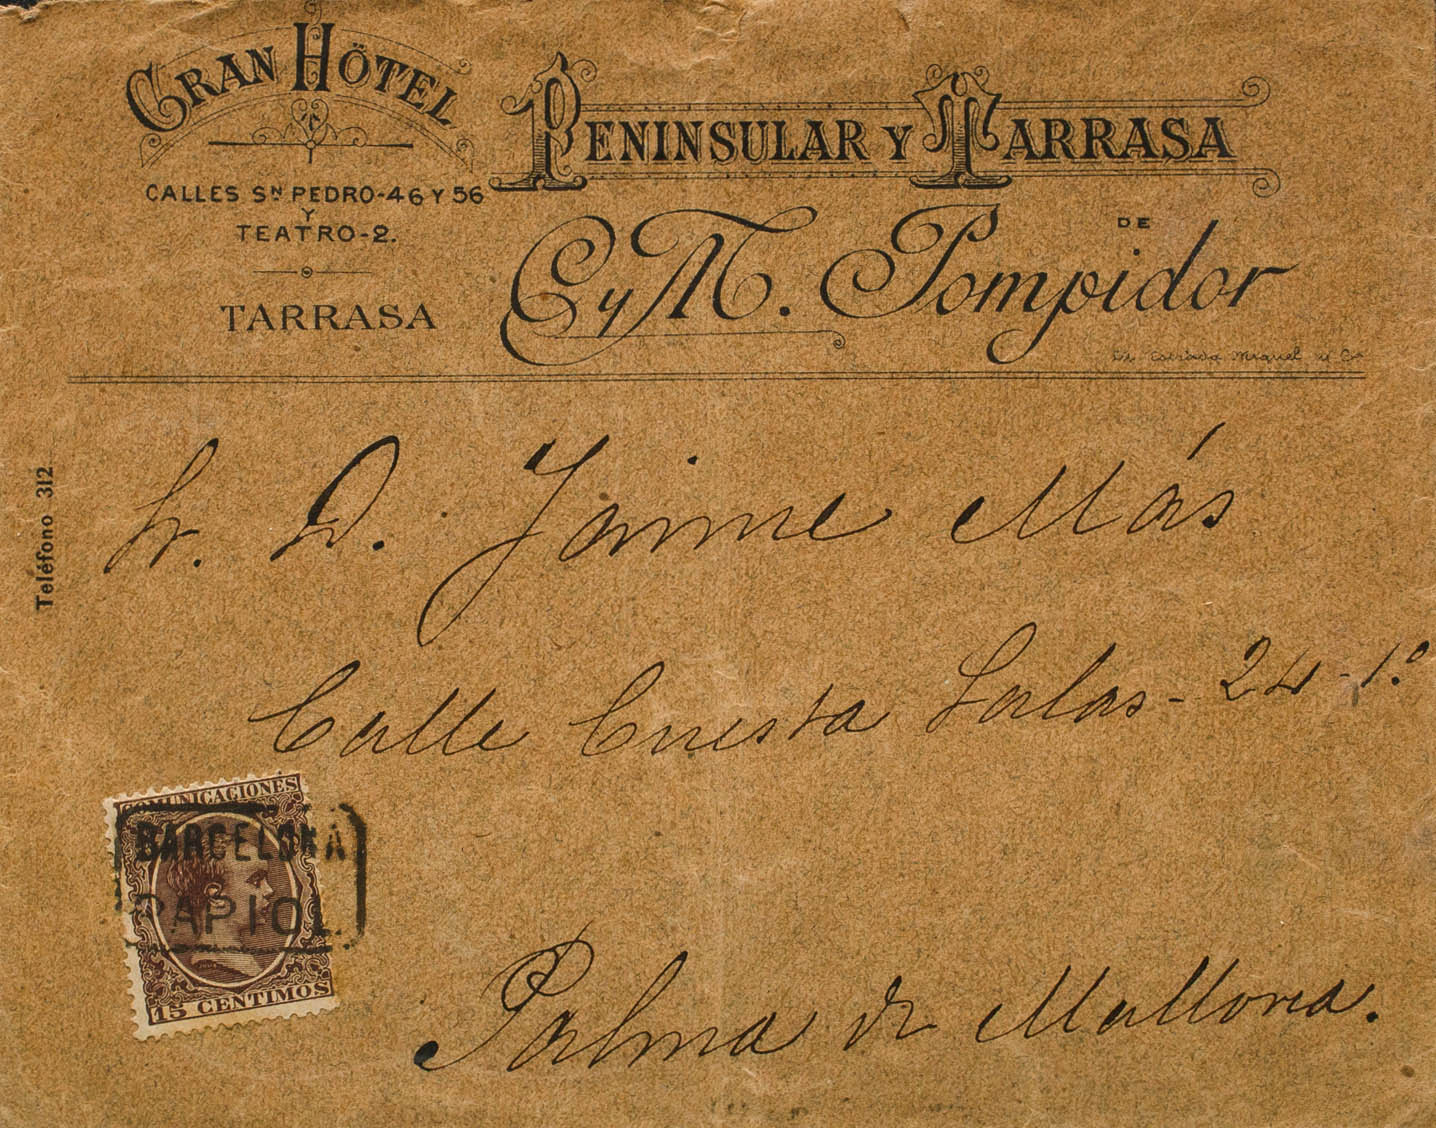 GRAN HÖTEL
CALLES Sⁿ PEDRO-46 Y 56
Y
TEATRO-2.
TARRASA
PENINSULAR Y TARRASA
DE
C y M. Pompidor
Miquel y Cª
Teléfono 312
Sr. D. Jaime Más
Calle Cuesta Salas - 24 - 1.º
COMUNICACIONES
BARCELONA
PAPIOL
15 CENTIMOS
Palma de Mallorca.